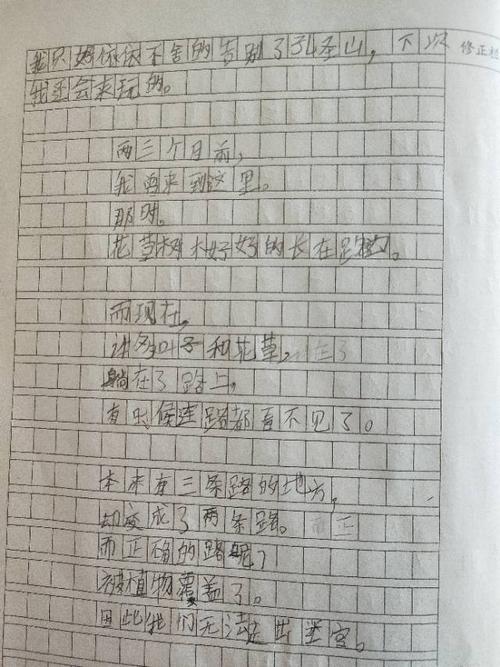 我只好依依不舍的告别了孔圣山，下次
修正栏
我还会来玩的。
两三个月前，
我曾来到这里。
那时。
花草树木好好的长在路边。
而现在，
许多叶子和花草，
躺在了路上，
有时候连路都看不见了。
本来有三条路的地方，
却变成了两条路。
而正确的路呢？
被植物覆盖了。
因此我们无法走出